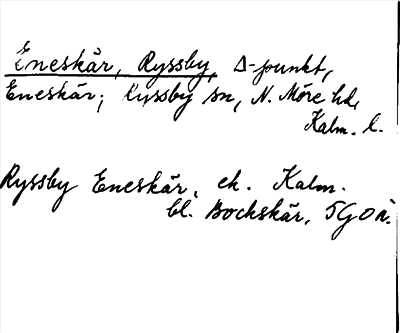 Eneskär, Ryssby, Δ-punkt,
Eneskär; Ryssby sn, N. Möre hd,
Kalm. l.
Ryssby Eneskär, ek. Kalm.
bl. Bockskär, 5G0